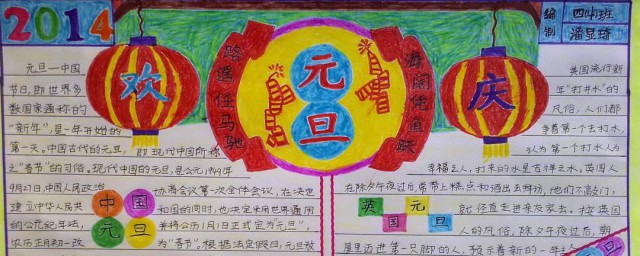 2014
欢
元旦
庆
路遥任马驰
海阔凭鱼跃
编制
四(4)班
元旦—中国
节日,即世界多
数国家通称的
“新年”,是一年开始的
第一天。中国古代的元旦, 即现代中国所称
之“春节”的习俗。现代中国的元旦,是公元1949年
9月27日,中国人民政治 协商会议第一次全体会议,在决定
建立中华人民共 和国的同时,也决定采用世界通用
的公元纪年法, 并将公历1月1日正式定为“元旦”,
农历正月初一改 为“春节”。根据法定假日,元旦放
中国
元旦
英国流行新
年“打井水”的
风俗,人们都
争着第一个去打水,
认为第一个打水人为
幸福之人,打来的水是吉祥之水。英国人
在除夕午夜过后,常带上糕点和酒出去拜访,他们不敲门,
就径直走进亲友家去。按英国
人的风俗,除夕午夜过后,朝
屋里迈进第一只脚的人,预示着新的一年
英国元旦